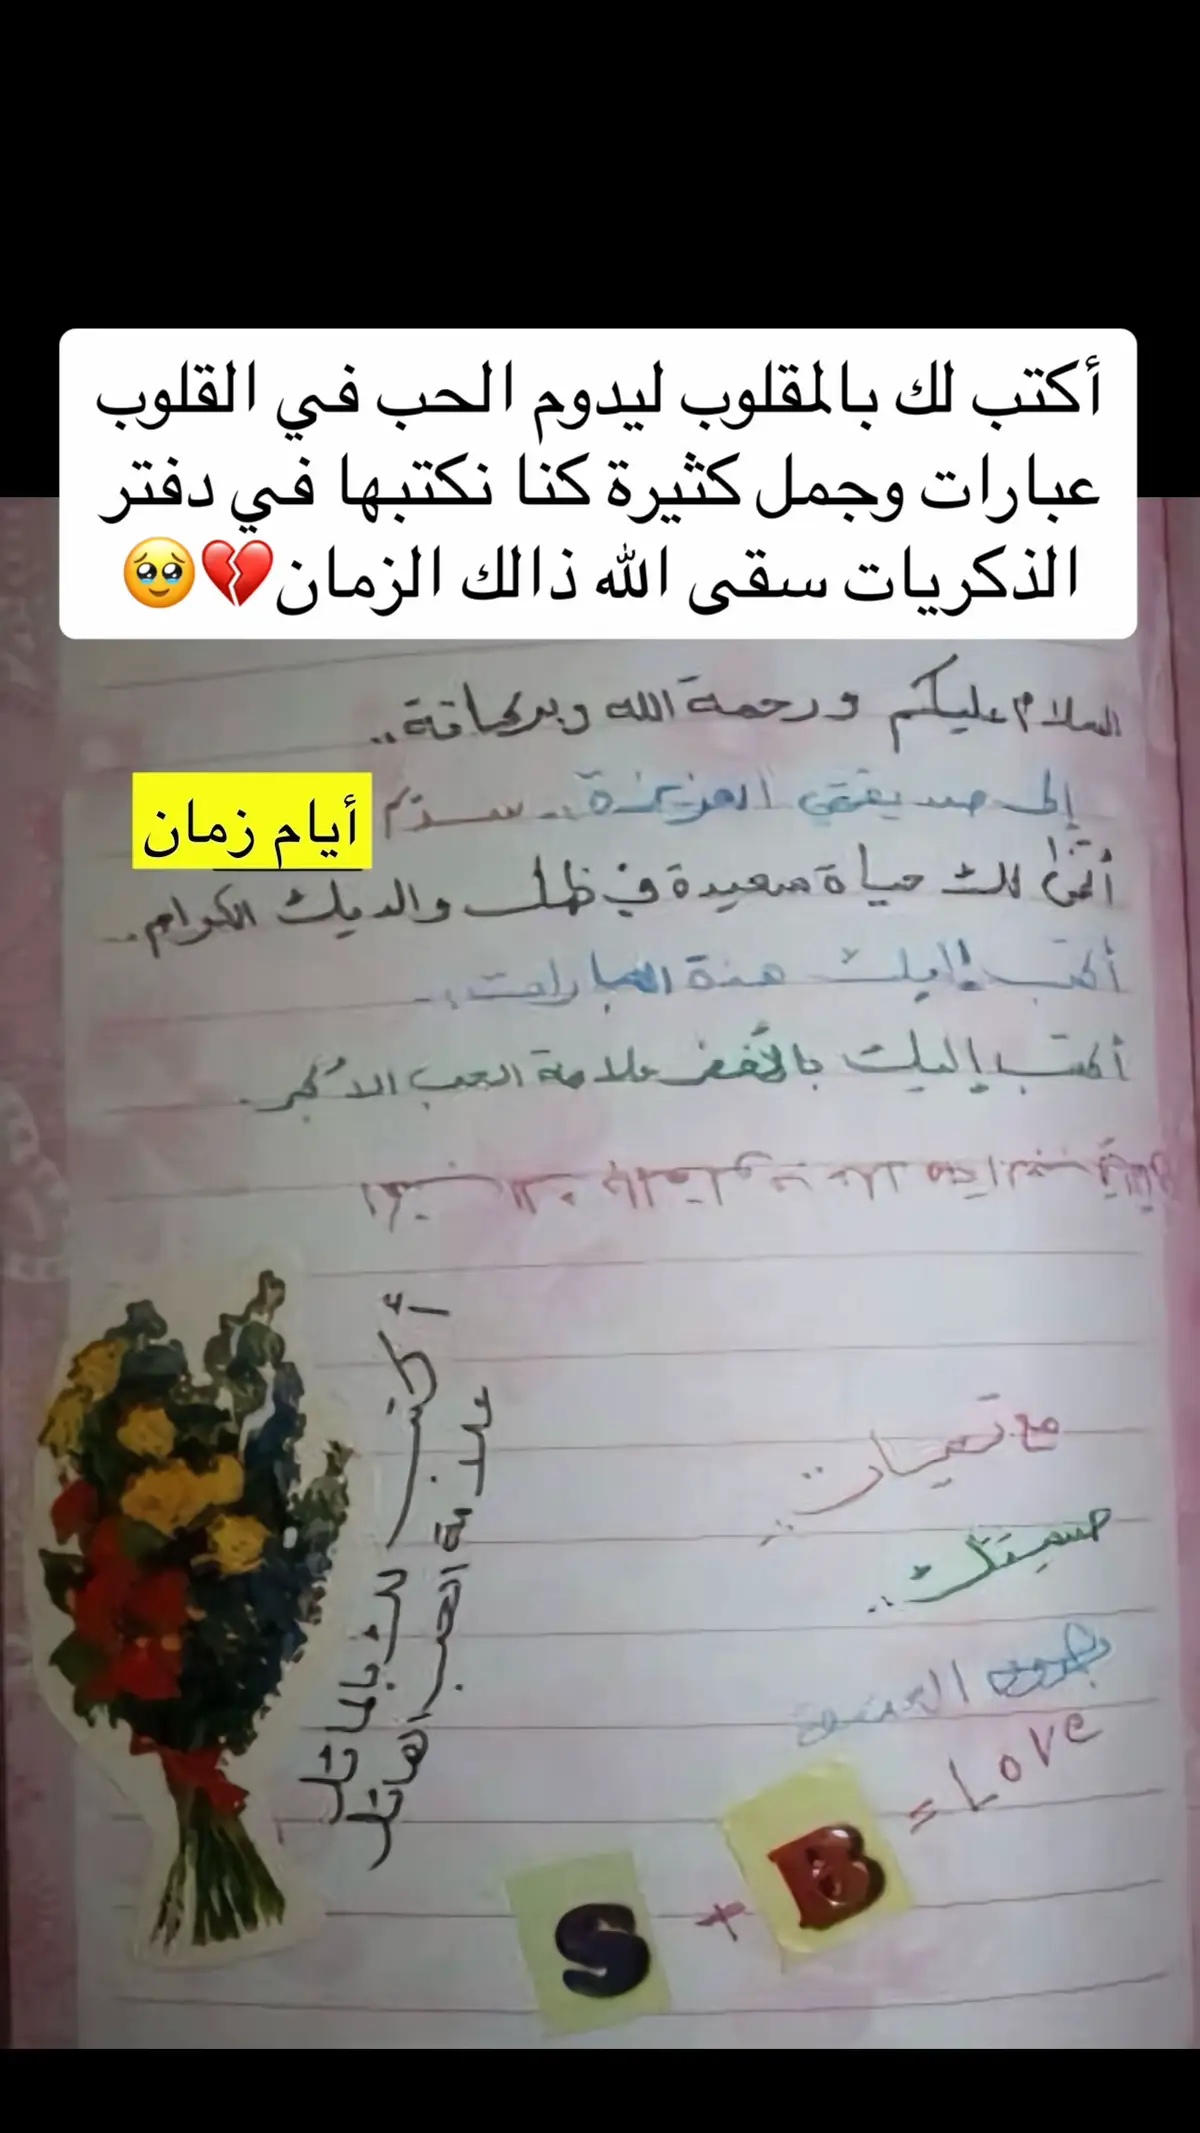 أكتب لك بالمقلوب ليدوم الحب في القلوب
عبارات وجمل كثيرة كنا نكتبها في دفتر
الذكريات سقى الله ذالك الزمان💔🥹
السلام عليكم ورحمة الله وبركاتة..
أيام زمان
إلى صديقتي العزيزة..
أتمنى لك حياة سعيدة في ظل والديك الكرام..
أكتب إليك هذة العبارات..
أكتب إليك بالأخضر علامة الحب الأكبر.
أكتب لك بالمائل
علانية الحب الهائل
مع تحيات..
صديقتك..
= Love
S + B